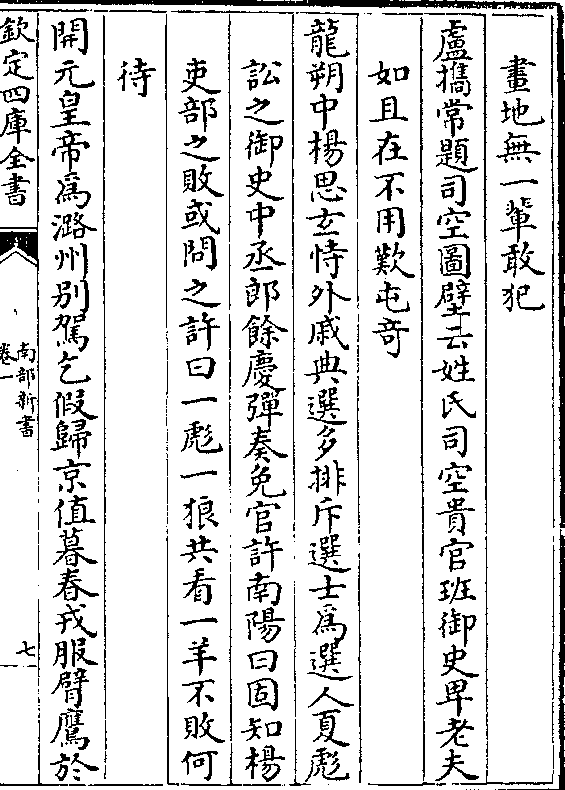 畫地無一輩敢犯
盧攜常題司空圖壁云姓氏司空貴官班御史卑老夫
如且在不用歎屯奇
龍朔中楊思玄恃外戚典選多排斥選士為選人夏彪
訟之御史中丞郎餘慶彈奏免官許南陽曰固知楊
吏部之敗或問之許曰一彪一狼共看一羊不敗何
待
開元皇帝為潞州别駕乞假歸京值暮春戎服臂鷹於
欽定四庫全書
南部新書
卷一
七